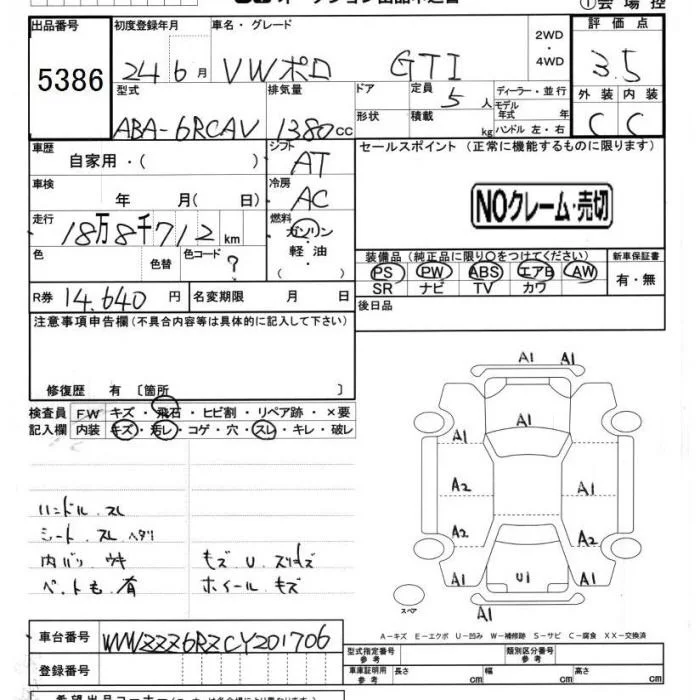 ①会場控
出品番号 初度登録年月 車名・グレード 2WD・4WD 評価点
5386 24 6月 VWポロ GTI 3.5
型式 排気量 ドア 定員 5人 ディーラー・並行 外装 内装
ABA-6RCAV 1380cc 形状 積載 kg モデル年式 年 ハンドル 左・右 C C
車歴 自家用・( ) シフト AT セールスポイント(正常に機能するものに限ります)
車検 年 月( 日) 冷房 AC NOクレーム・売切
走行 18万8千712km 燃料 ガソリン 軽油 ( ・ )
色 色替 色コード ? 装備品(純正品に限り○をつけてください) 新車保証書
PS PW ABS エアB AW 有・無
SR ナビ TV カワ
R券 14,640円 名変期限 月 日 後日品
注意事項申告欄(不具合内容等は具体的に記入して下さい)
修復歴 有〔箇所 〕
検査員 FW キズ・飛石・ヒビ割・リペア跡・×要
記入欄 内装 キズ・汚レ・コゲ・穴・スレ・キレ・破レ
A1 A1
U1
A1 A1
A2 A1
A2 A2
A1 U1 A1
A1
スペア
ハンドル スレ
シート スレ ヘタリ
内バリ ウキ
ペットも有 ホイールキズ
A-キズ E-エクボ U-凹み W-補修跡 S-サビ C-腐食 XX-交換済
車台番号 WVWZZZ6RZCY201706
型式指定番号 参考 類別区分番号 参考
登録番号 車庫証明用 参考 長さ cm 幅 cm 高さ cm